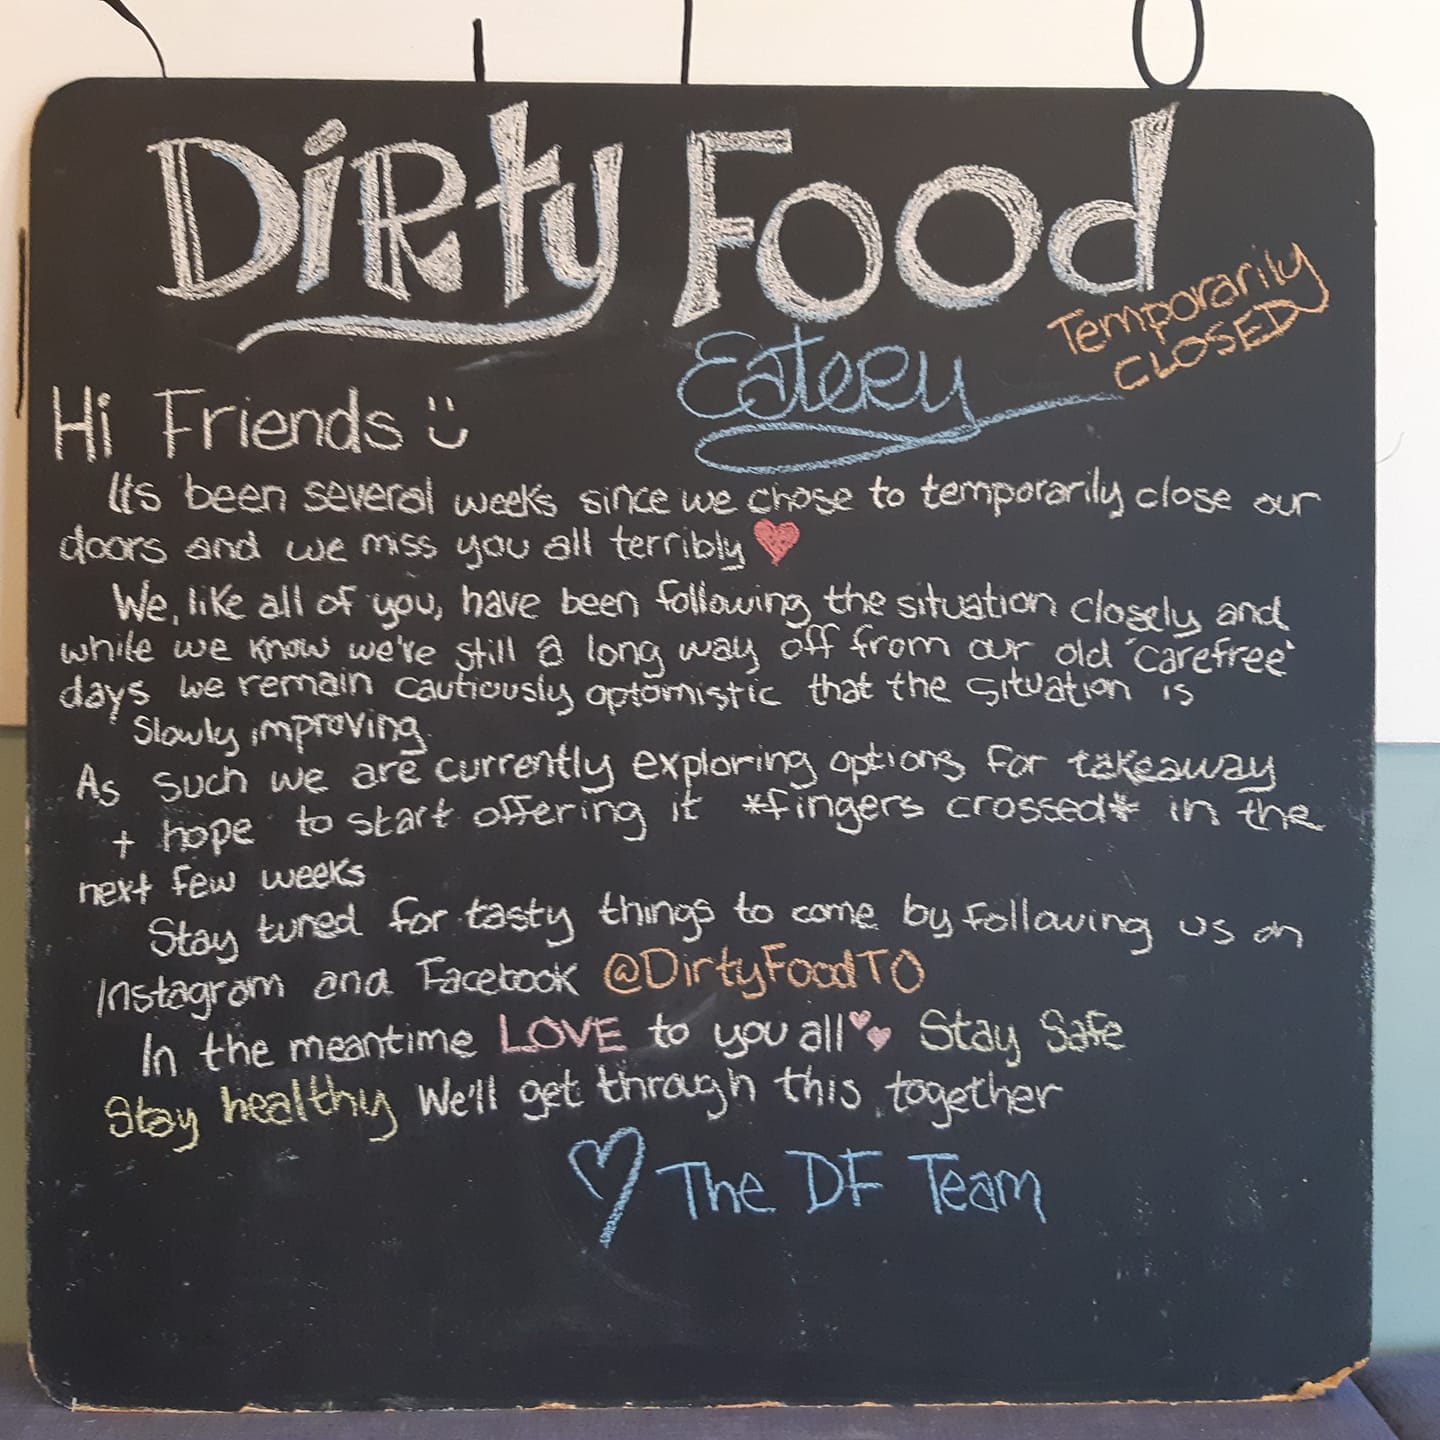 Dirty Food
Eatery
Temporarily
CLOSED
Hi Friends
It's been several weeks since we chose to temporarily close our
doors and we miss you all terribly
We, like all of you, have been following the situation closely and
while we know we're still a long way off from our old 'carefree'
days we remain cautiously optomistic that the situation is
slowly improving.
As such we are currently exploring options for takeaway
+ hope to start offering it *fingers crossed* in the
next few weeks
Stay tuned for tasty things to come by following us on
Instagram and Facebook @DirtyFoodTO
In the meantime LOVE to you all Stay Safe
Stay healthy We'll get through this together
The DF Team